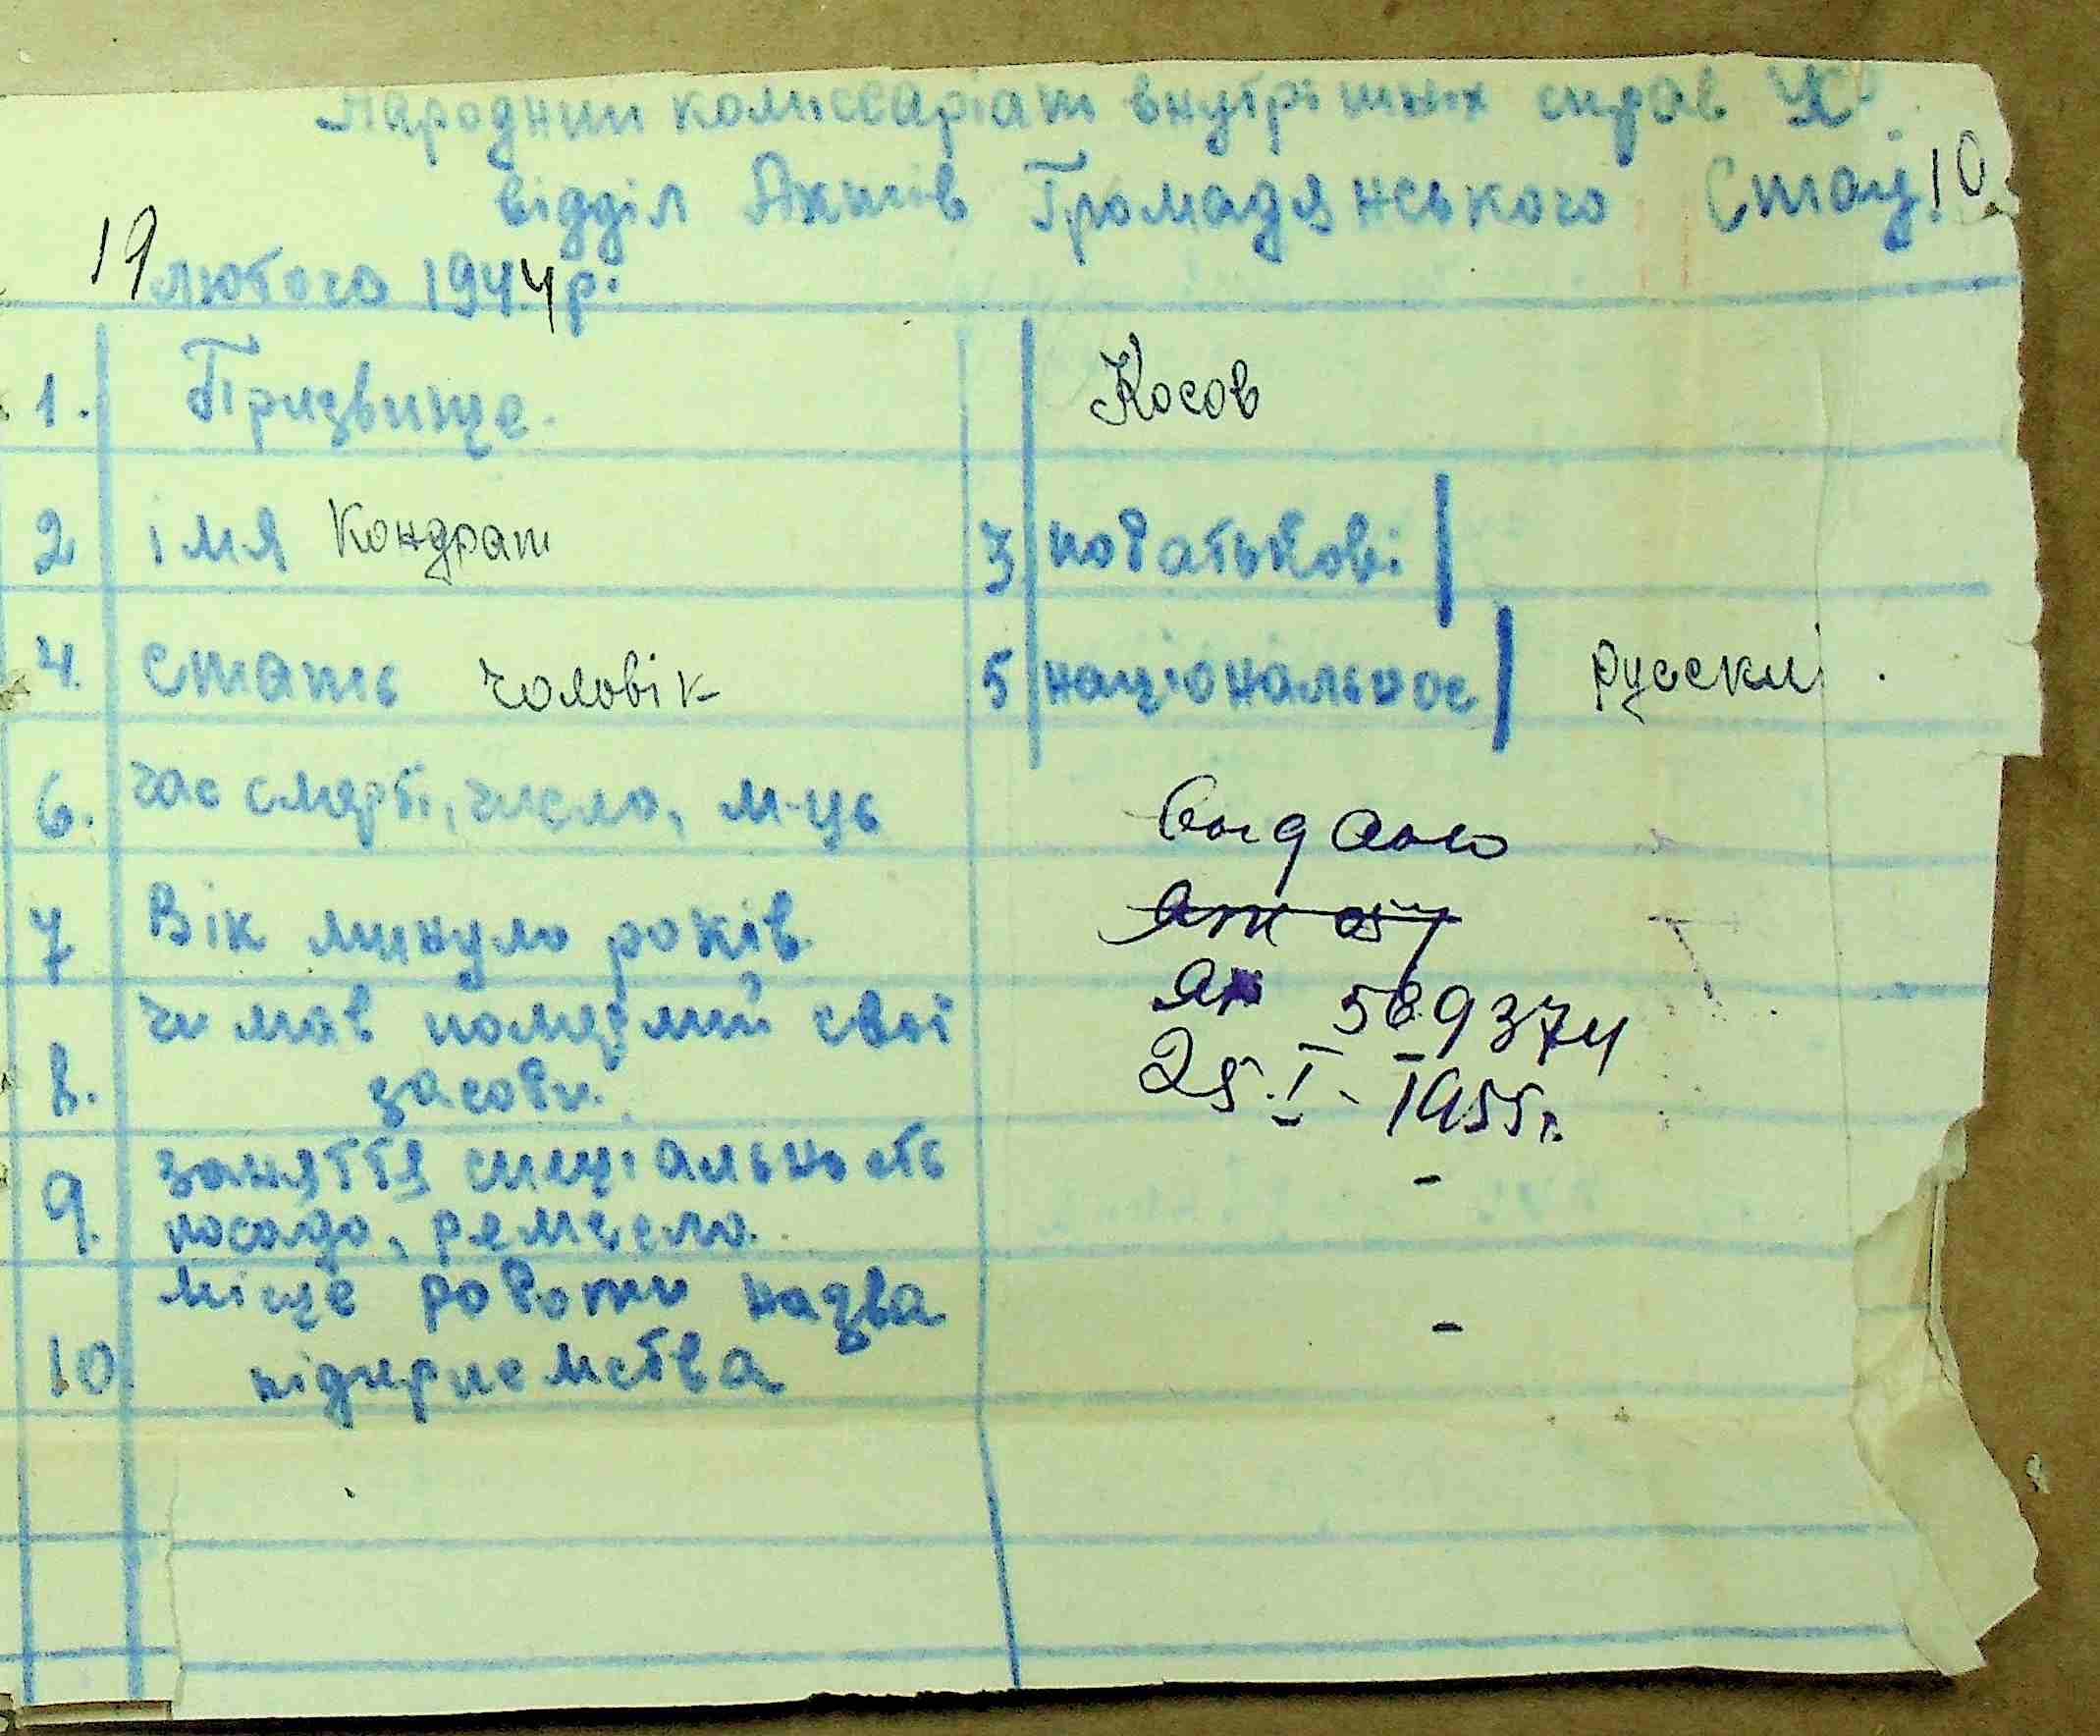 Народний комиссаріат внутрішніх справ
відділ Актів Громадянського Стану 10
19 лютого 1944 р.
1. Прizвище. Косов
2 імя Кондрат 3 побатькові
4. стать чоловік 5 національнос русский
6. час смерті, число, м-ць выдано
7 Вік минуло років
ак 589374
8. чи мав померлий свої
засоби. 25.I-1955г.
9. заняття специальность -
посада, ремесло.
місце роботи назва -
10 підприемства